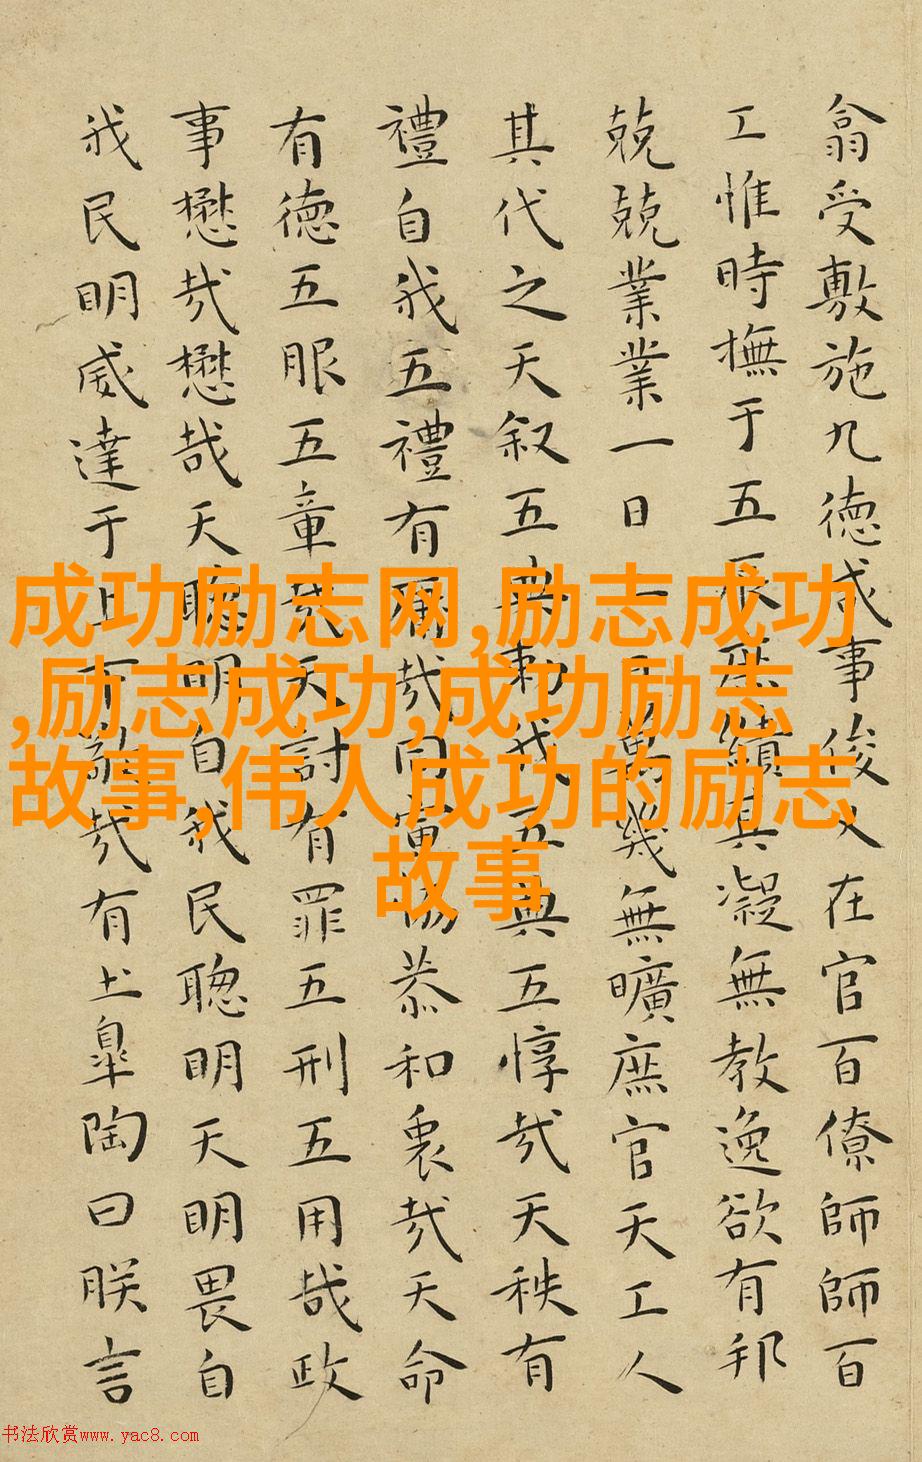 翕受敷施九德咸事俊乂在官百僚師師百
工惟時撫于五辰庶績其凝無教逸欲有邦
兢兢業業一日二日萬幾無曠庶官天工人
其代之天叙五典勑我五典五惇哉天秩有
禮自我五禮有庸哉同寅協恭和衷哉天命
有德五服五章哉天討有罪五刑五用哉政
事懋哉懋哉天聰明自我民聰明天明畏自
我民明威達于上下敬哉有土皋陶曰朕言
成功励志网,励志成功
,励志成功,成功励志
故事,伟人成功的励志
故事
书法欣赏www.yac8.com